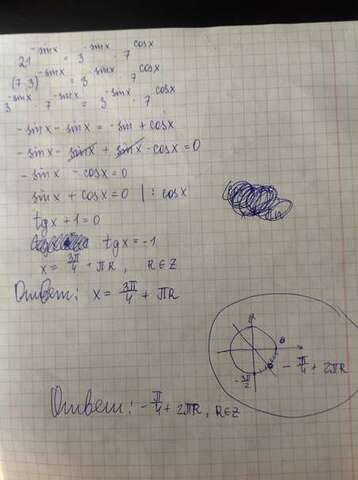 21^{-sinx} = 3^{-sinx} · 7^{cosx}
(7·3)^{-sinx} = 3^{-sinx} · 7^{cosx}
3^{-sinx} · 7^{-sinx} = 3^{-sinx} · 7^{cosx}
-sinx - sinx = -sin + cosx
-sinx - sinx + sinx - cosx = 0
-sinx - cosx = 0
sinx + cosx = 0 | : cosx
tgx + 1 = 0
tgx = -1
x = 3π/4 + πk, k∈Z
Ответ: x = 3π/4 + πk
0
-π/4 + 2πk
-3π/2
Ответ: -π/4 + 2πk, k∈Z